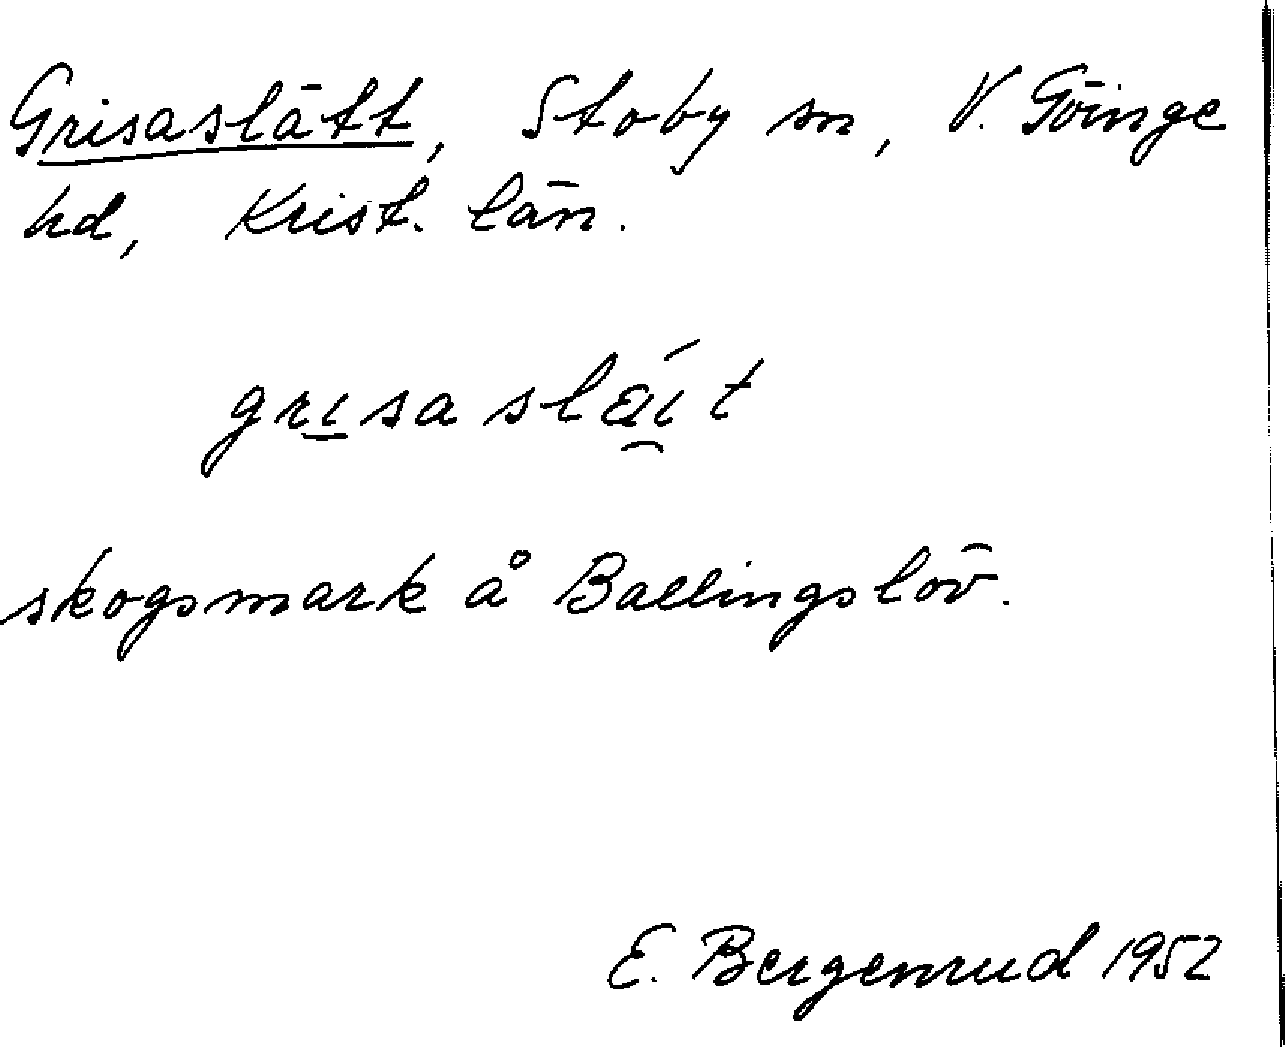 Grisaslätt, Stoby sn, V. Göinge
hd, Krist. län.
grı̲sa sla̯ı́t
skogsmark å Ballingslöv.
E. Bergenrud 1952